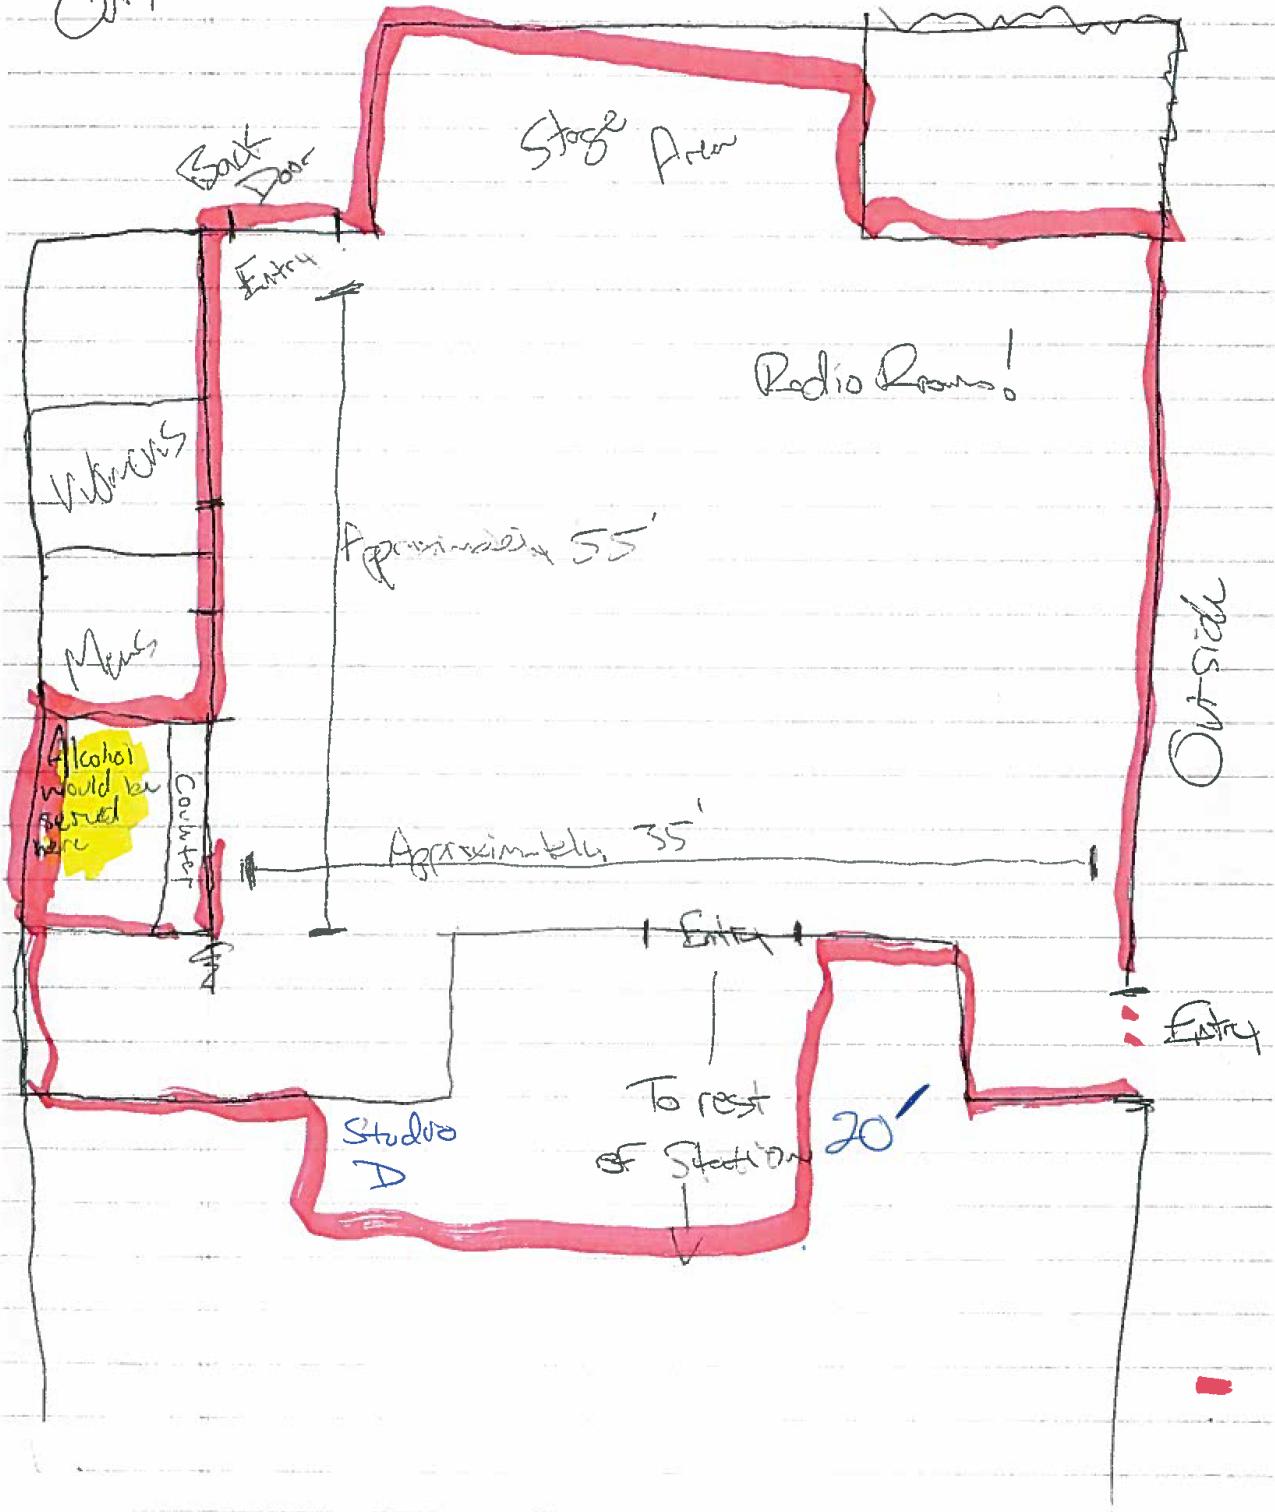 Back
Door
Stage Area
Entry
Radio Rooms!
Womens
Approximately 55'
Mens
Out-side
Alcohol
would be
served
here
Counter
Approximately 35'
Entry
Entry
To rest
of Station
20'
Studio
D